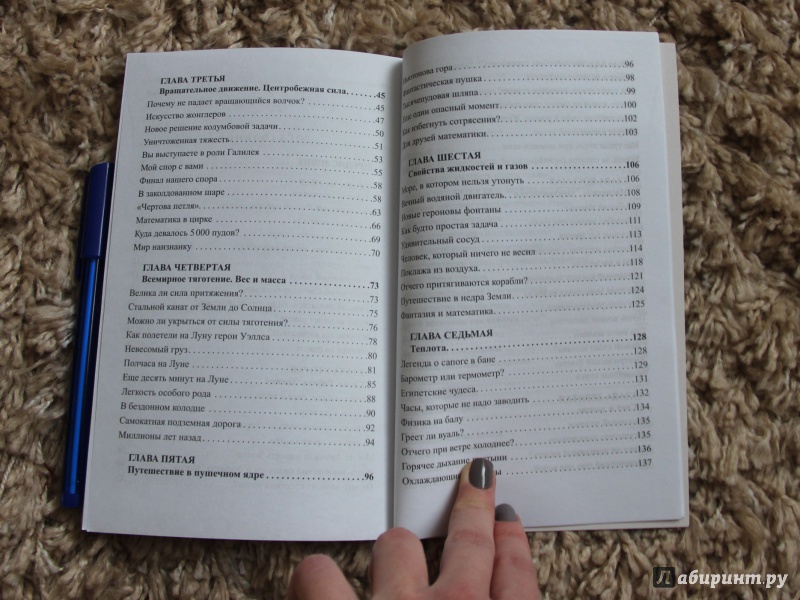 ГЛАВА ТРЕТЬЯ
Вращательное движение. Центробежная сила. . . . . . 45
Почему не падает вращающийся волчок? . . . . . . . . . . . . 45
Искусство жонглеров . . . . . . . . . . . . . . . . . . . . . . . . . . . . 47
Новое решение колумбовой задачи . . . . . . . . . . . . . . . . . 50
Уничтоженная тяжесть . . . . . . . . . . . . . . . . . . . . . . . . . . 51
Вы выступаете в роли Галилея . . . . . . . . . . . . . . . . . . . . 53
Мой спор с вами . . . . . . . . . . . . . . . . . . . . . . . . . . . . . . . . 55
Финал нашего спора . . . . . . . . . . . . . . . . . . . . . . . . . . . . . 58
В заколдованном шаре . . . . . . . . . . . . . . . . . . . . . . . . . . . 58
«Чертова петля». . . . . . . . . . . . . . . . . . . . . . . . . . . . . . . . 63
Математика в цирке . . . . . . . . . . . . . . . . . . . . . . . . . . . . . 66
Куда девалось 5 000 пудов? . . . . . . . . . . . . . . . . . . . . . . . 69
Мир наизнанку . . . . . . . . . . . . . . . . . . . . . . . . . . . . . . . . . 70
ГЛАВА ЧЕТВЕРТАЯ
Всемирное тяготение. Вес и масса . . . . . . . . . . . . . . . . 73
Велика ли сила притяжения? . . . . . . . . . . . . . . . . . . . . . . 73
Стальной канат от Земли до Солнца . . . . . . . . . . . . . . . . 75
Можно ли укрыться от силы тяготения?. . . . . . . . . . . . . . 76
Как полетели на Луну герои Уэллса . . . . . . . . . . . . . . . . . 78
Невесомый груз . . . . . . . . . . . . . . . . . . . . . . . . . . . . . . . . 80
Полчаса на Луне . . . . . . . . . . . . . . . . . . . . . . . . . . . . . . . . 81
Еще десять минут на Луне . . . . . . . . . . . . . . . . . . . . . . . . 85
Легкость особого рода . . . . . . . . . . . . . . . . . . . . . . . . . . . 88
В бездонном колодце . . . . . . . . . . . . . . . . . . . . . . . . . . . . 90
Самокатная подземная дорога . . . . . . . . . . . . . . . . . . . . . 92
Миллионы лет назад . . . . . . . . . . . . . . . . . . . . . . . . . . . . . 94
ГЛАВА ПЯТАЯ
Путешествие в пушечном ядре . . . . . . . . . . . . . . . . . . . 96
гора . . . . . . . . . . . . . . . . . . . . . . . . . . . . . . . . . . 96
пушка . . . . . . . . . . . . . . . . . . . . . . . . . . . . . 98
шляпа . . . . . . . . . . . . . . . . . . . . . . . . . . . . . 99
один опасный момент . . . . . . . . . . . . . . . . . . . . . . 100
Как избегнуть сотрясения? . . . . . . . . . . . . . . . . . . . . . . . 102
Для друзей математики. . . . . . . . . . . . . . . . . . . . . . . . . . 103
ГЛАВА ШЕСТАЯ
Свойства жидкостей и газов . . . . . . . . . . . . . . . . . . . . 106
Море, в котором нельзя утонуть . . . . . . . . . . . . . . . . . . . 106
Вечный водяной двигатель. . . . . . . . . . . . . . . . . . . . . . . 108
Новые героновы фонтаны . . . . . . . . . . . . . . . . . . . . . . . . 109
Как будто простая задача . . . . . . . . . . . . . . . . . . . . . . . . 111
Удивительный сосуд . . . . . . . . . . . . . . . . . . . . . . . . . . . . 113
Человек, который ничего не весил . . . . . . . . . . . . . . . . . 114
Поклажа из воздуха. . . . . . . . . . . . . . . . . . . . . . . . . . . . . 118
Отчего притягиваются корабли? . . . . . . . . . . . . . . . . . . . 121
Путешествие в недра Земли . . . . . . . . . . . . . . . . . . . . . . 124
Фантазия и математика . . . . . . . . . . . . . . . . . . . . . . . . . . 125
ГЛАВА СЕДЬМАЯ
Теплота. . . . . . . . . . . . . . . . . . . . . . . . . . . . . . . . . . . . . . 128
Легенда о сапоге в бане . . . . . . . . . . . . . . . . . . . . . . . . . 128
Барометр или термометр? . . . . . . . . . . . . . . . . . . . . . . . . 129
Египетские чудеса. . . . . . . . . . . . . . . . . . . . . . . . . . . . . . 131
Часы, которые не надо заводить . . . . . . . . . . . . . . . . . . . 132
Физика на балу . . . . . . . . . . . . . . . . . . . . . . . . . . . . . . . . 134
Греет ли вуаль? . . . . . . . . . . . . . . . . . . . . . . . . . . . . . . . . 135
Отчего при ветре холоднее? . . . . . . . . . . . . . . . . . . . . . . 135
Горячее дыхание . . . . . . . . . . . . . . . . . . . . . . . 136
. . . . . . . . . . . . . . . . . . . . . . . . 137
Лабиринт.ру